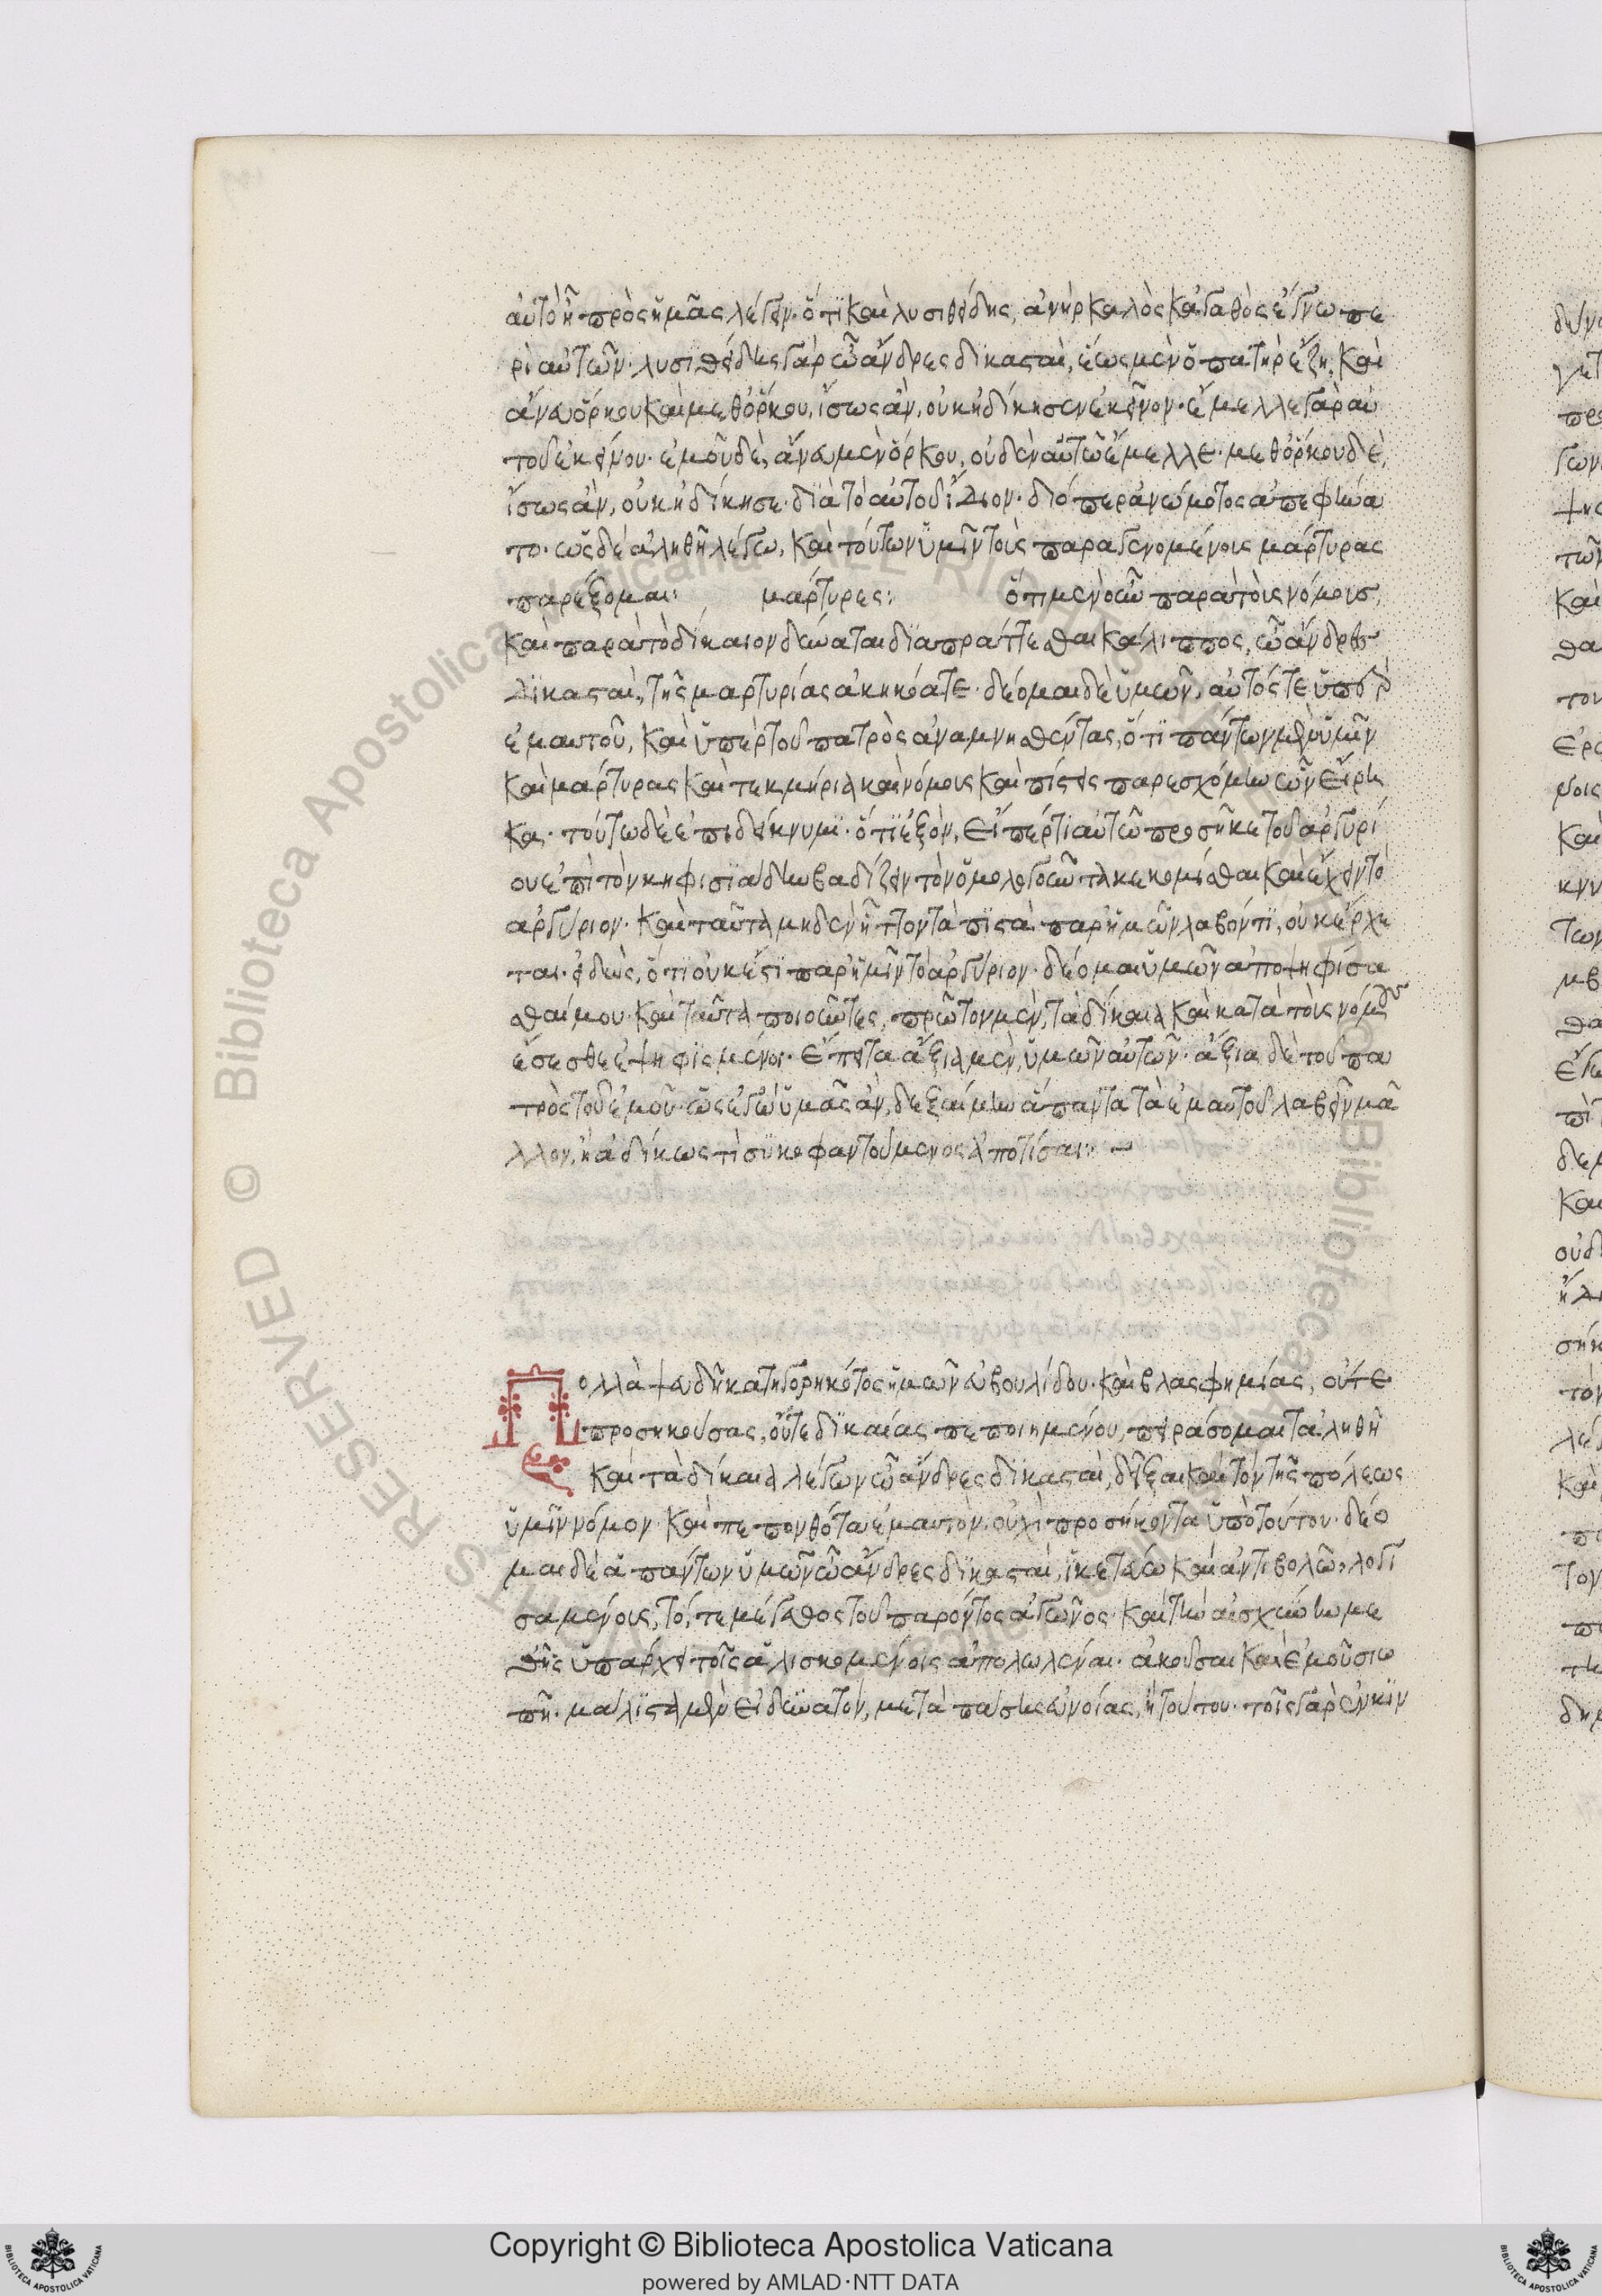 αὐτὸ ᾖ πρὸς ἡμᾶς λέγειν· ὅτι καὶ λυσιθείδης, ἀνὴρ καλὸς κἀγαθὸς ἔγνω πε
ρὶ αὐτῶν· λυσιθείδης γὰρ ὦ ἄνδρες δικασταὶ, ἕως μὲν ὁ πατὴρ ἔζη, καὶ
ἄνευ ὅρκου καὶ μεθ ὅρκου, ἴσως ἂν, οὐκ ἠδίκησεν ἐκεῖνον· ἔμελλε γὰρ αὐ
τοῦ ἐκείνου· ἐμοῦ δὲ, ἄνευ μὲν ὅρκου, οὐδὲν αὐτῶ ἔμελλε· μεθ ὅρκου δὲ,
ἴσως ἂν, οὐκ ἠδίκησε· διὰ τὸ αὑτοῦ ἴδιον· διόπερ ἀνώμοτος ἀπεφήνα
το· ὡς δὲ ἀληθῆ λέγω, καὶ τούτων ὑμῖν τοὺς παραγενομένους μάρτυρας
παρέξομαι: μάρτυρες: ὅτι μὲν οὖν παρὰ τοὺς νόμους,
καὶ παρὰ τὸ δίκαιον δύναται διαπράττεσθαι κάλιππος, ὦ ἄνδρες
δικασταὶ, τῆς μαρτυρίας ἀκηκόατε· δέομαι δὲ ὑμῶν, αὐτός τε ὑπὲρ
ἐμαυτοῦ, καὶ ὑπὲρ τοῦ πατρὸς ἀναμνησθέντας, ὅτι πάντων μὲν ὑμῖν
καὶ μάρτυρας καὶ τεκμήρια καὶ νόμους καὶ πίστεις παρεσχόμην ὧν εἴρη
κα· τούτω δὲ ἐπιδείκνυμι· ὅτι ἐξὸν, εἴπέρ τι αὐτῶ προσῆκε τοῦ ἀργυρί
ου ἐπὶ τὸν κηφισιάδην βαδίζειν τὸν ὁμολογοῦντα κεκομίσθαι καὶ ἔχειν τὸ
ἀργύριον· καὶ ταῦτα μηδὲν ἧττον τὰ πιστὰ παρ ἡμῶν λαβόντι, οὐκ ἔρχε
ται· εἰδὼς, ὅτι οὐκ ἔστι παρ ἡμῖν τὸ ἀργύριον· δέομαι ὑμῶν ἀποψηφίσα
σθαί μου· καὶ ταῦτα ποιοῦντες, πρῶτον μὲν, τὰ δίκαια καὶ κατὰ τοὺς νόμους
ἔσεσθε ἐψηφισμένοι· ἔπειτα ἄξια μὲν, ὑμῶν αὐτῶν· ἄξια δὲ τοῦ πα
τρὸς τοῦ ἐμοῦ· ὡς ἐγὼ ὑμᾶς ἂν, δεξαίμην ἅπαντα τὰ ἐμαυτοῦ λαβεῖν μᾶ
λλον, ἢ ἀδίκως τι συκοφαντούμενος ἀποτίσαι: ~
Πολλὰ ψευδῆ κατηγορηκότος ἡμῶν εὐβουλίδου· καὶ βλασφημίας, οὔτε
προσηκούσας, οὔτε δικαίας πεποιημένου, πειράσομαι τἀληθῆ
καὶ τὰ δίκαια λέγων ὦ ἄνδρες δικασταὶ, δεῖξαι καὶ τὸν τῆς πόλεως
ὑμῖν νόμον· καὶ πεπονθότα ἐμαυτὸν, οὐχὶ προσήκοντα ὑπὸ τούτου· δέο
μαι δὲ ἁπάντων ὑμῶν ὦ ἄνδρες δικασταὶ, ἱκετεύω καὶ ἀντιβολῶ, λογι
σαμένους, τό, τε μέγεθος τοῦ παρόντος ἀγῶνος· καὶ τὴν αἰσχύνην με
θῆς ὑπάρχει τοῖς ἁλισκομένοις ἀπολωλέναι· ἀκοῦσαι καὶ ἐμοῦ σιω
πῇ· μάλιστα μὲν εἰ δυνατὸν, μετὰ πάσης εὐνοίας, ἢ τούτου· τοῖς γὰρ ἐν κιν